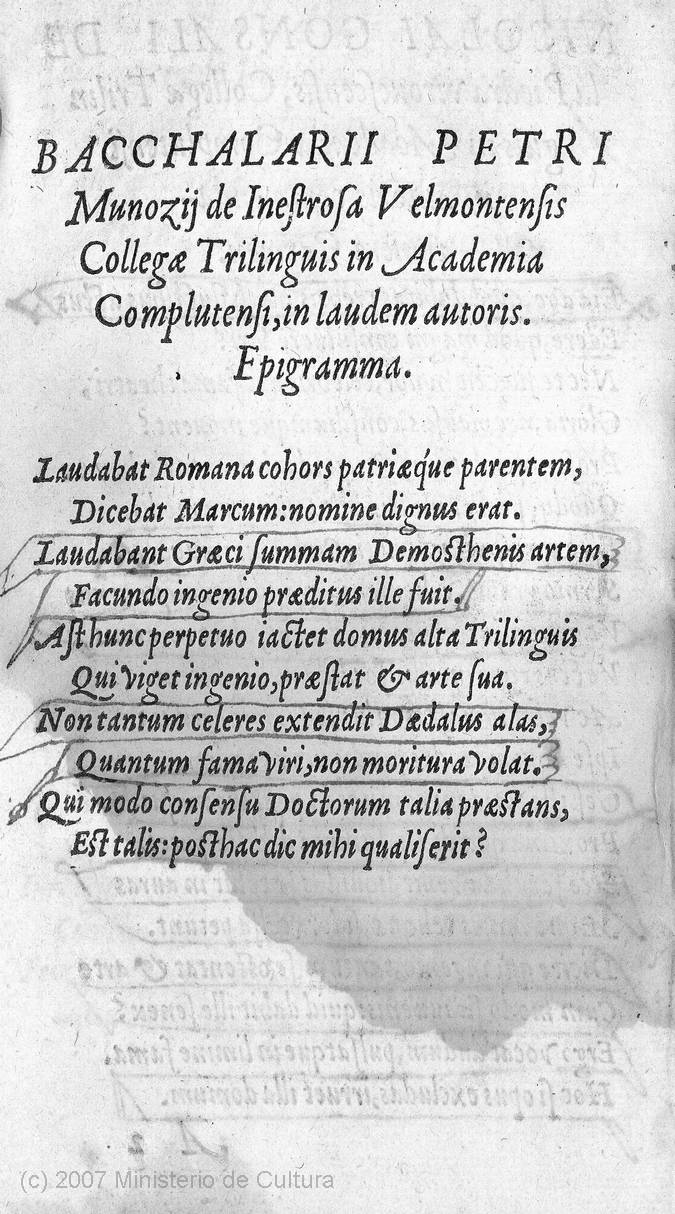 BACCHALARII PETRI
Munozij de Inestrosa Velmontensis
Collegæ Trilinguis in Academia
Complutensi, in laudem autoris.
Epigramma.
Laudabat Romana cohors patriæq́ue parentem,
Dicebat Marcum: nomine dignus erat.
Laudabant Græci summam Demosthenis artem,
Facundo ingenio præditus ille fuit.
Ast hunc perpetuo iactet domus alta Trilinguis
Qui viget ingenio, præstat & arte sua.
Non tantum celeres extendit Dædalus alas,
Quantum fama viri, non moritura volat.
Qui modo consensu Doctorum talia præstans,
Est talis: posthac dic mihi qualis erit?
(c) 2007 Ministerio de Cultura